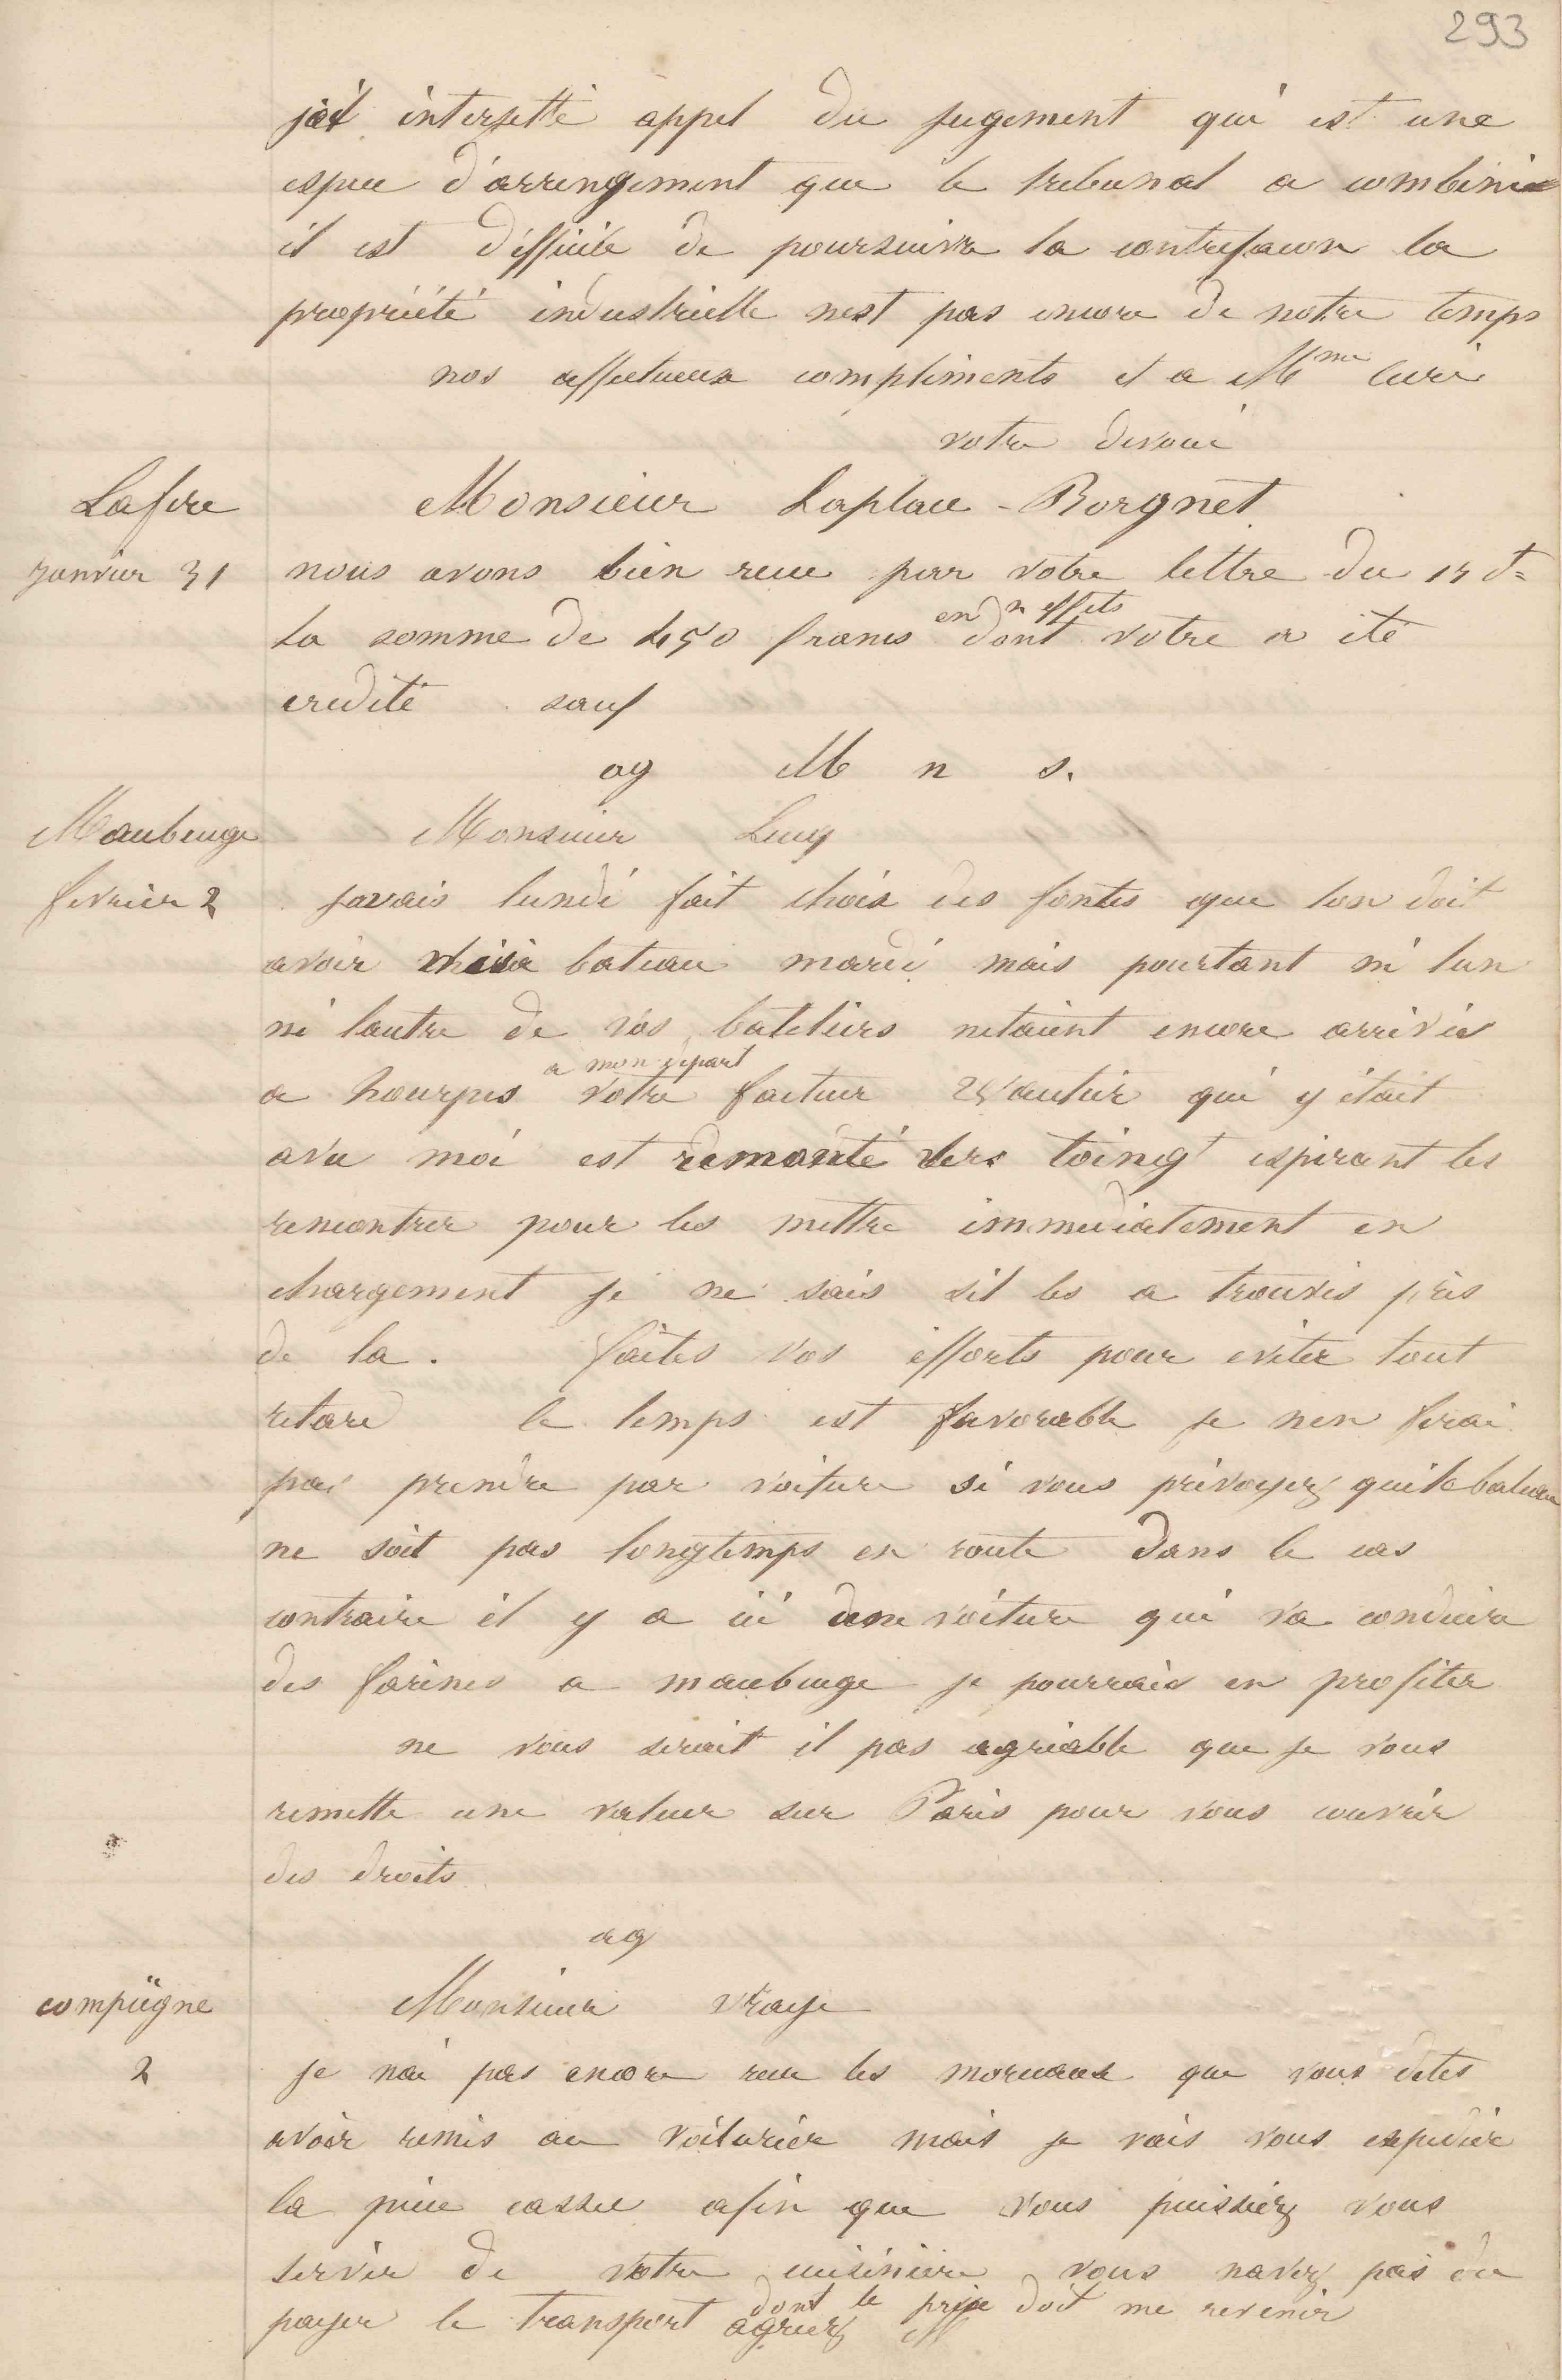 293
jai interjetté appel du jugement qui est une
espece d'arrengement que le tribunal a combiné
il est difficile de poursuivre la contrefacon la
propriété industrielle nest pas encore de notre temps
nos affectueux compliments et a Mme
votre devoué
Lafere Monsieur Laplace - Borgnet
janvier 31 nous avons bien recu par votre lettre du 15 dt
la somme de 450 francs en n effets dont votre a été
credité sauf
ag M n s.
Maubeuge Monsieur
fevrier 2 javais lundi fait choix des fontes que lon doit
avoir bateau mardi mais pourtant ni lun
ni lautre de vos bateliers netaient encore arrivés
a hourpes a mon depart votre facteur Wautier qui y était
avec moi est remonté vers esperant les
rencontrer pour les mettre immediatement en
chargement je ne sais sil les a trouvés près
de la. faites vos efforts pour eviter tout
retard le temps est favorable je nen ferai
pas prendre par voiture si vous prévoyez que le bateau
ne soit pas longtemps en route dans le cas
contraire il y a ici une voiture qui va conduire
des farines a maubeuge je pourrais en profiter
ne vous serait il pas agréable que je vous
remette une valeur sur Paris pour vous couvrir
des droits
ag
compiègne Monsieur Vraye
2 je nai pas encore recu les morceaux que vous dites
avoir remis au voiturier mais je vais vous expedier
la piece cassee afin que vous puissiez vous
servir de votre cuisiniere vous navez pas du
payer le transport dont le prix doit me revenir
agreez M